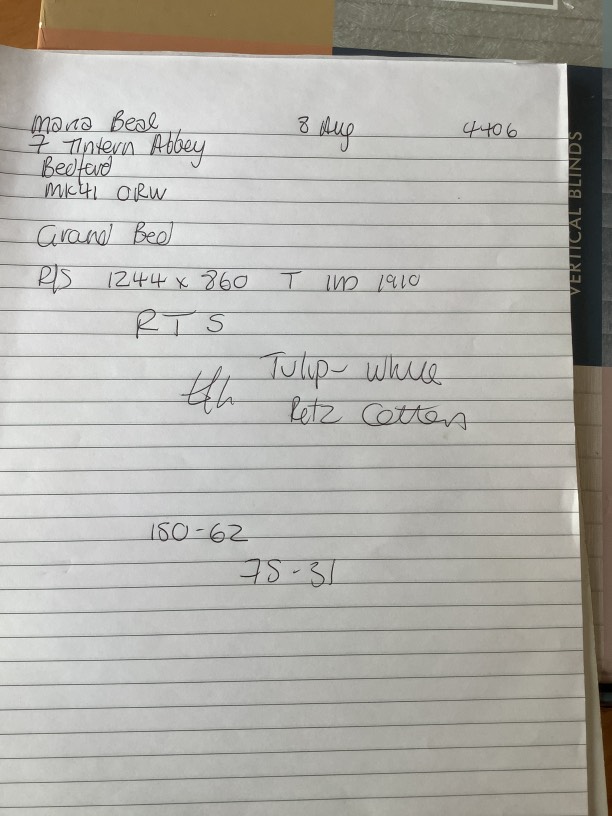 Maria Beal 8 Aug 4406
7 Tintern Abbey
Bedford
MK41 0RW
Grand Bed
R/S 1244 x 860 T 1910
RTS
Tulip - White
Cotton
150-62
75-31
VERTICAL BLINDS